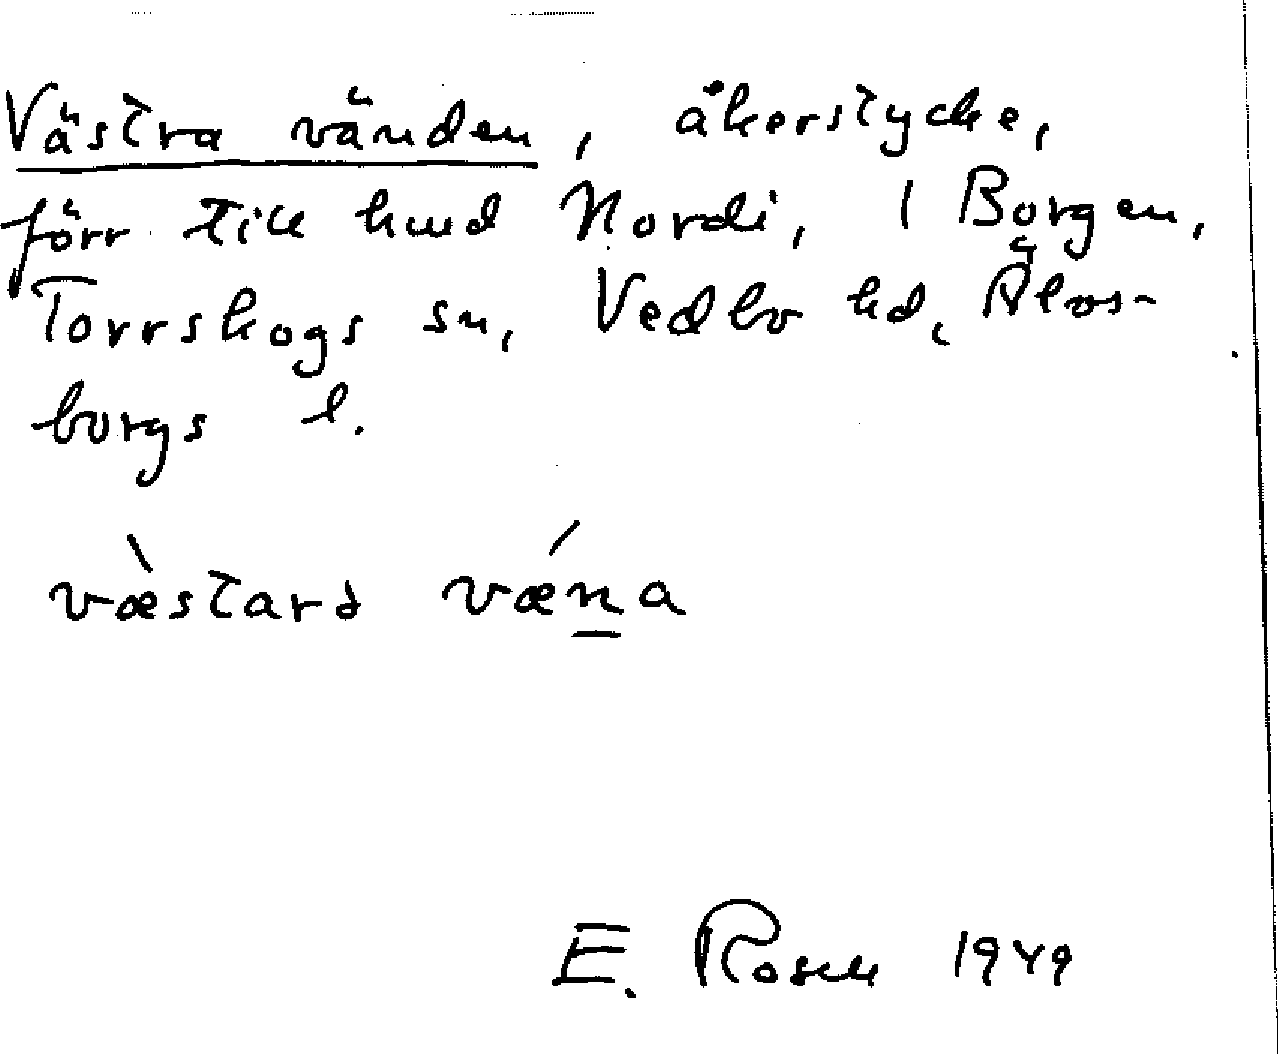 Västra vänden, åkerstycke,
förr till hmd Nordi, 1 Borgen,
Torrskogs sn, Vedbo hd, Älvs-
borgs l.
væ̀stərə vǽna
E. Rosell 1949